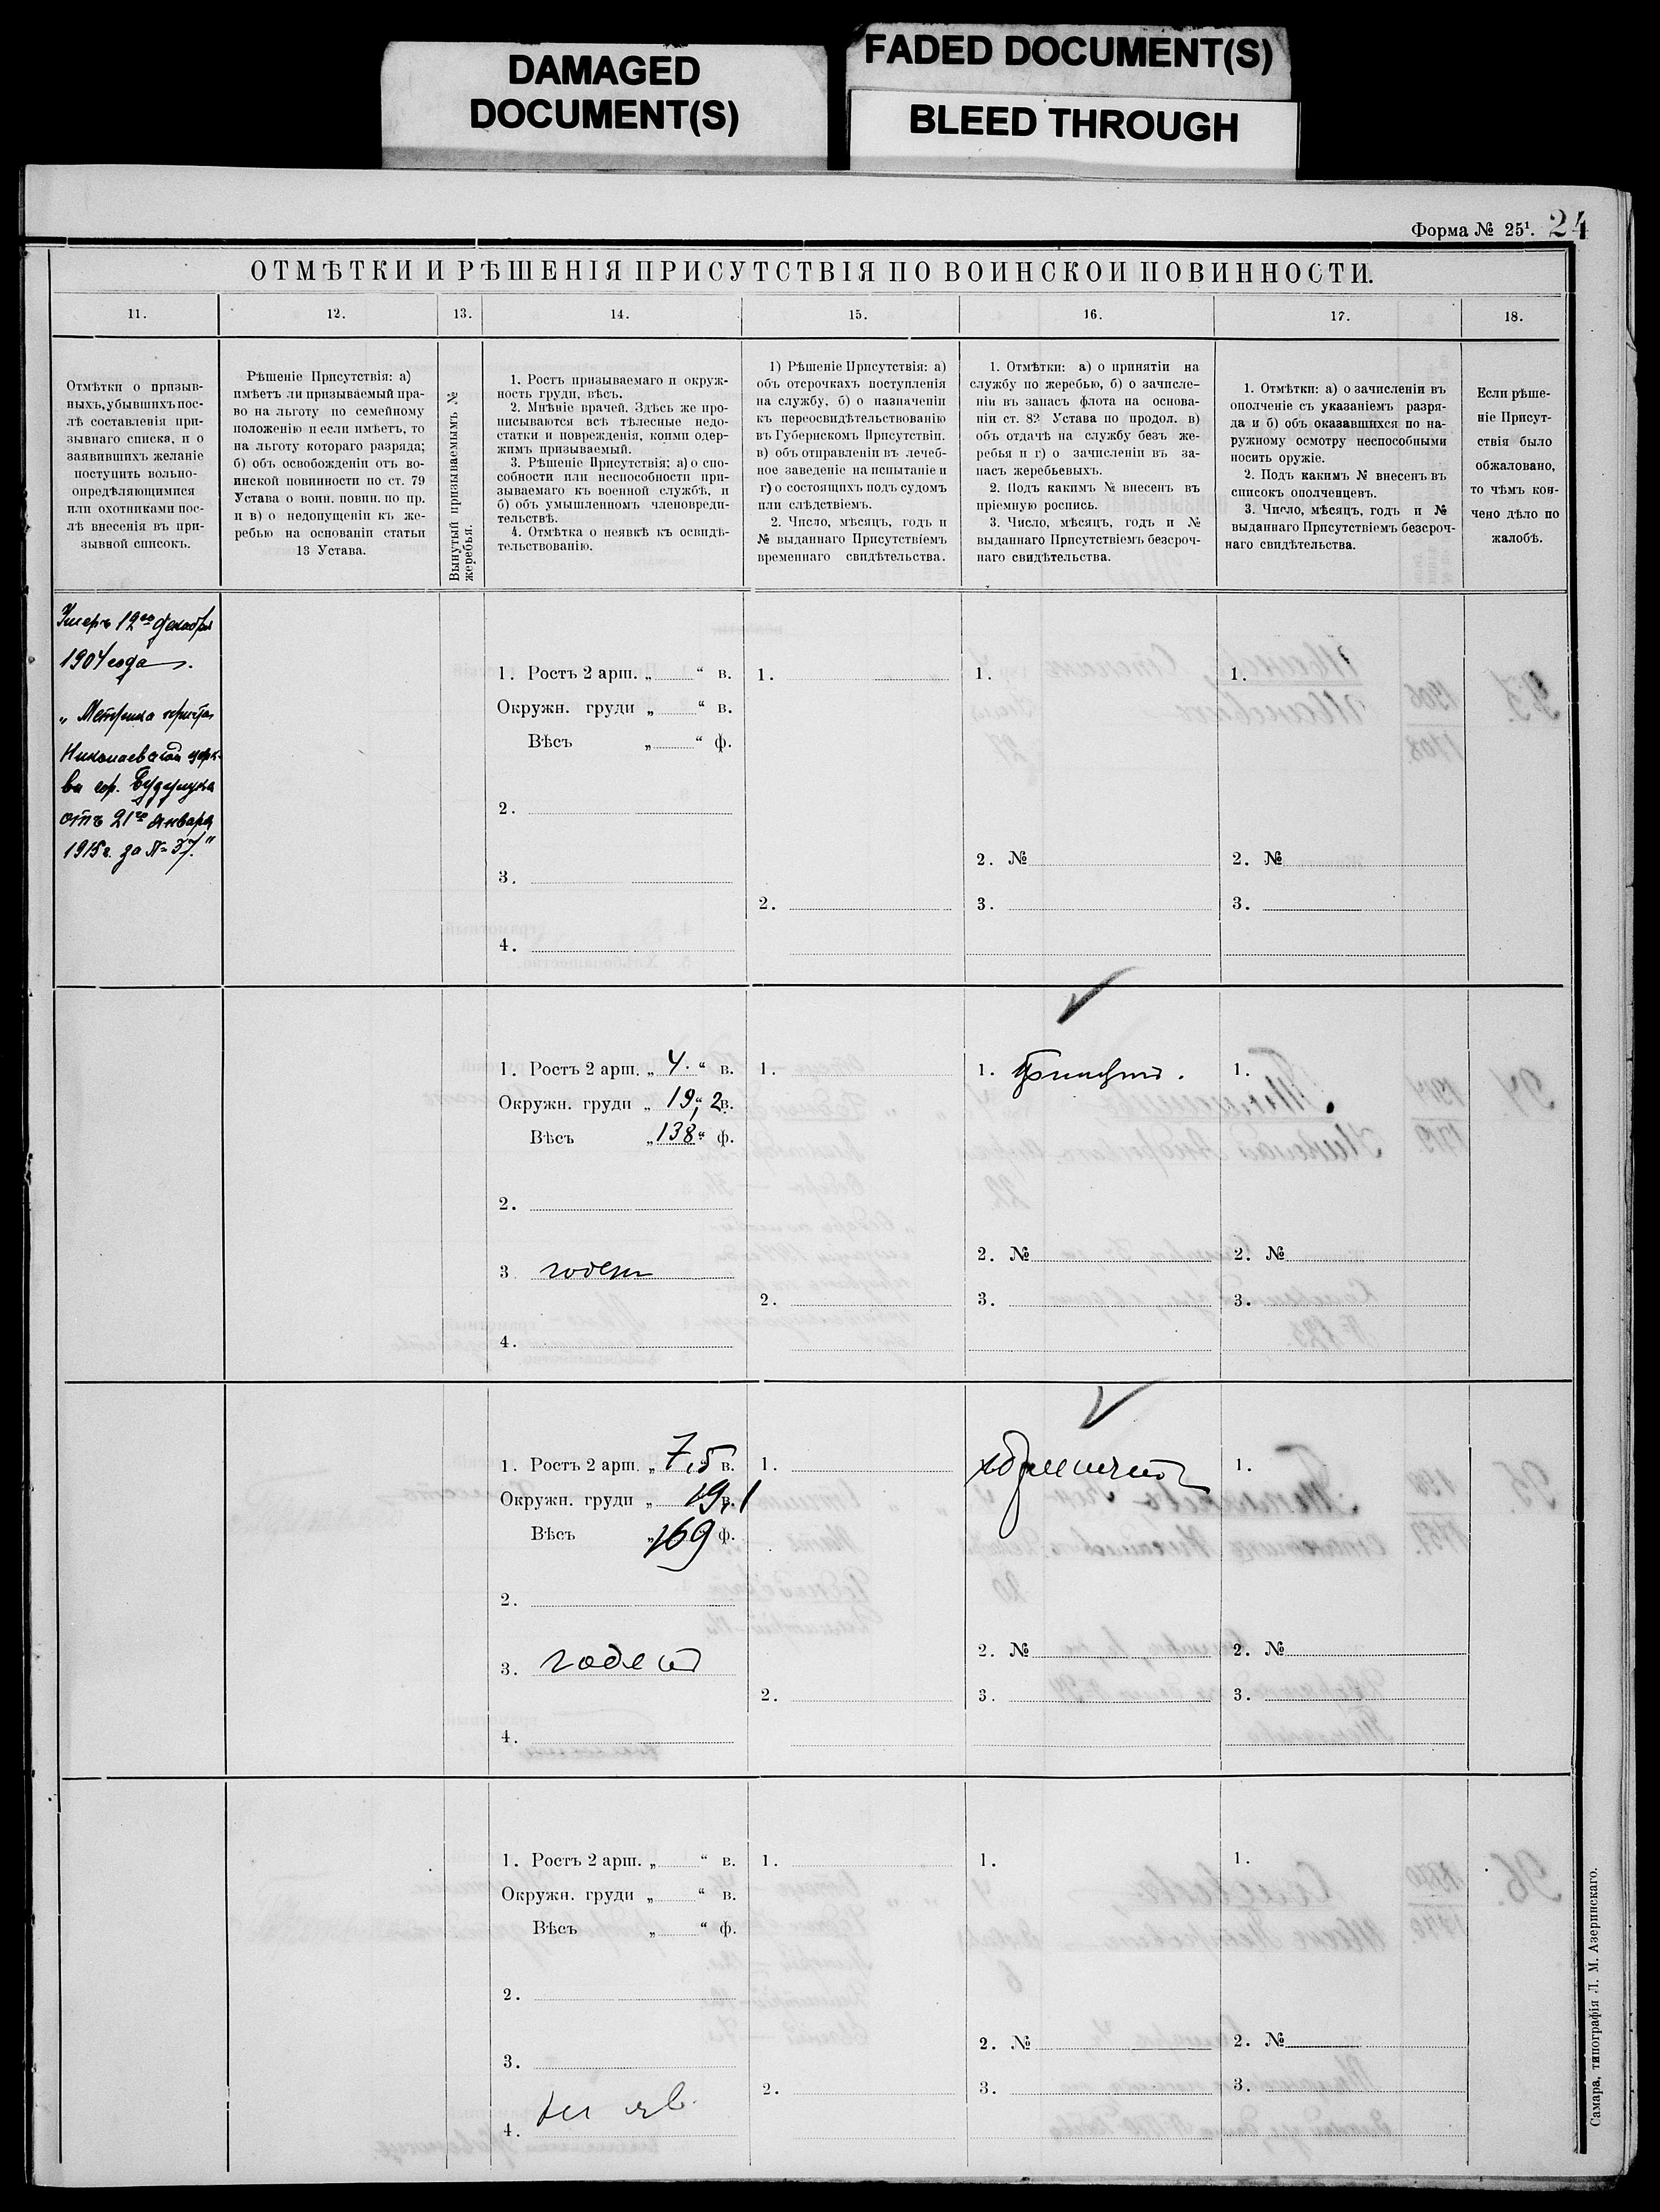 DAMAGED
DOCUMENT(S)
FADED DOCUMENT(S)
BLEED THROUGH
Форма № 25¹. 24
ОТМѢТКИ И РѢШЕНІЯ ПРИСУТСТВІЯ ПО ВОИНСКОЙ ПОВИННОСТИ.
11. 12. 13. 14. 15. 16. 17. 18.
Отмѣтки о призыв-
ныхъ, убывшихъ пос-
лѣ составленія при-
зывнаго списка, и о
заявившихъ желаніе
поступить вольно-
опредѣляющимися
или охотниками пос-
лѣ внесенія въ при-
зывной списокъ.
Рѣшеніе Присутствія: а)
имѣетъ ли призываемый пра-
во на льготу по семейному
положенію и если имѣетъ, то
на льготу котораго разряда;
б) объ освобожденіи отъ во-
инской повинности по ст. 79
Устава о воин. повин. по пр.
и в) о недопущеніи къ же-
ребью на основаніи статьи
13 Устава.
Вынутый призываемымъ №
жеребья.
1. Ростъ призываемаго и окруж-
ность груди, вѣсъ.
2. Мнѣніе врачей. Здѣсь же про-
писываются всѣ тѣлесные недо-
статки и поврежденія, коими одер-
жимъ призываемый.
3. Рѣшеніе Присутствія; а) о спо-
собности или неспособности при-
зываемаго къ военной службѣ, и
б) объ умышленномъ членовреди-
тельствѣ.
4. Отмѣтка о неявкѣ къ освидѣ-
тельствованію.
1) Рѣшеніе Присутствія: а)
объ отсрочкахъ поступленія
на службу, б) о назначеніи
къ переосвидѣтельствованію
въ Губернскомъ Присутствіи.
в) объ отправленіи въ лечеб-
ное заведеніе на испытаніе и
г) о состоящихъ подъ судомъ
или слѣдствіемъ.
2. Число, мѣсяцъ, годъ и
№ выданнаго Присутствіемъ
временнаго свидѣтельства.
1. Отмѣтки: а) о принятіи на
службу по жеребью, б) о зачисле-
ніи въ запасъ флота на основа-
ніи ст. 82 Устава по продол. в)
объ отдачѣ на службу безъ же-
ребья и г) о зачисленіи въ за-
пасъ жеребьевыхъ.
2. Подъ какимъ № внесенъ въ
пріемную роспись.
3. Число, мѣсяцъ, годъ и №
выданнаго Присутствіемъ безсроч-
наго свидѣтельства.
1. Отмѣтки: а) о зачисленіи въ
ополченіе съ указаніемъ разря-
да и б) объ оказавшихся по на-
ружному осмотру неспособными
носить оружіе.
2. Подъ какимъ № внесенъ въ
списокъ ополченцевъ.
3. Число, мѣсяцъ, годъ и №
выданнаго Присутствіемъ безсроч-
наго свидѣтельства.
Если рѣше-
ніе Присут-
ствія было
обжаловано,
то чѣмъ кон-
чено дѣло по
жалобѣ.
Умеръ 12го декабря
1904 года.
„Метрика причта
Николаевской церк-
ви гор. Бузулука
отъ 21го января
1915 г. за № 37."
1. Ростъ 2 арш. „ “ в. 1. 1. 1.
Окружн. груди „ “ в.
Вѣсъ „ “ ф.
2.
2. № 2. №
3.
2. 3. 3.
4.
1. Ростъ 2 арш. „ 4. “ в. 1. 1. Принятъ. 1.
Окружн. груди „ 19, 2 в.
Вѣсъ „ 138 “ ф.
2.
2. № 2. №
3 годен
2. 3. 3.
4.
1. Ростъ 2 арш. „ 7,5 в. 1. 1.
Окружн. груди „ 19,1 в.
Вѣсъ „ 169 ф.
2.
2. № 2. №
3. годен
2. 3. 3.
4.
1. Ростъ 2 арш. „ “ в. 1. 1. 1.
Окружн. груди „ “ в.
Вѣсъ „ “ ф.
2.
2. № 2. №
3.
2. 3. 3.
4. не яв.
Самара, типографія Л. М. Азеринскаго.